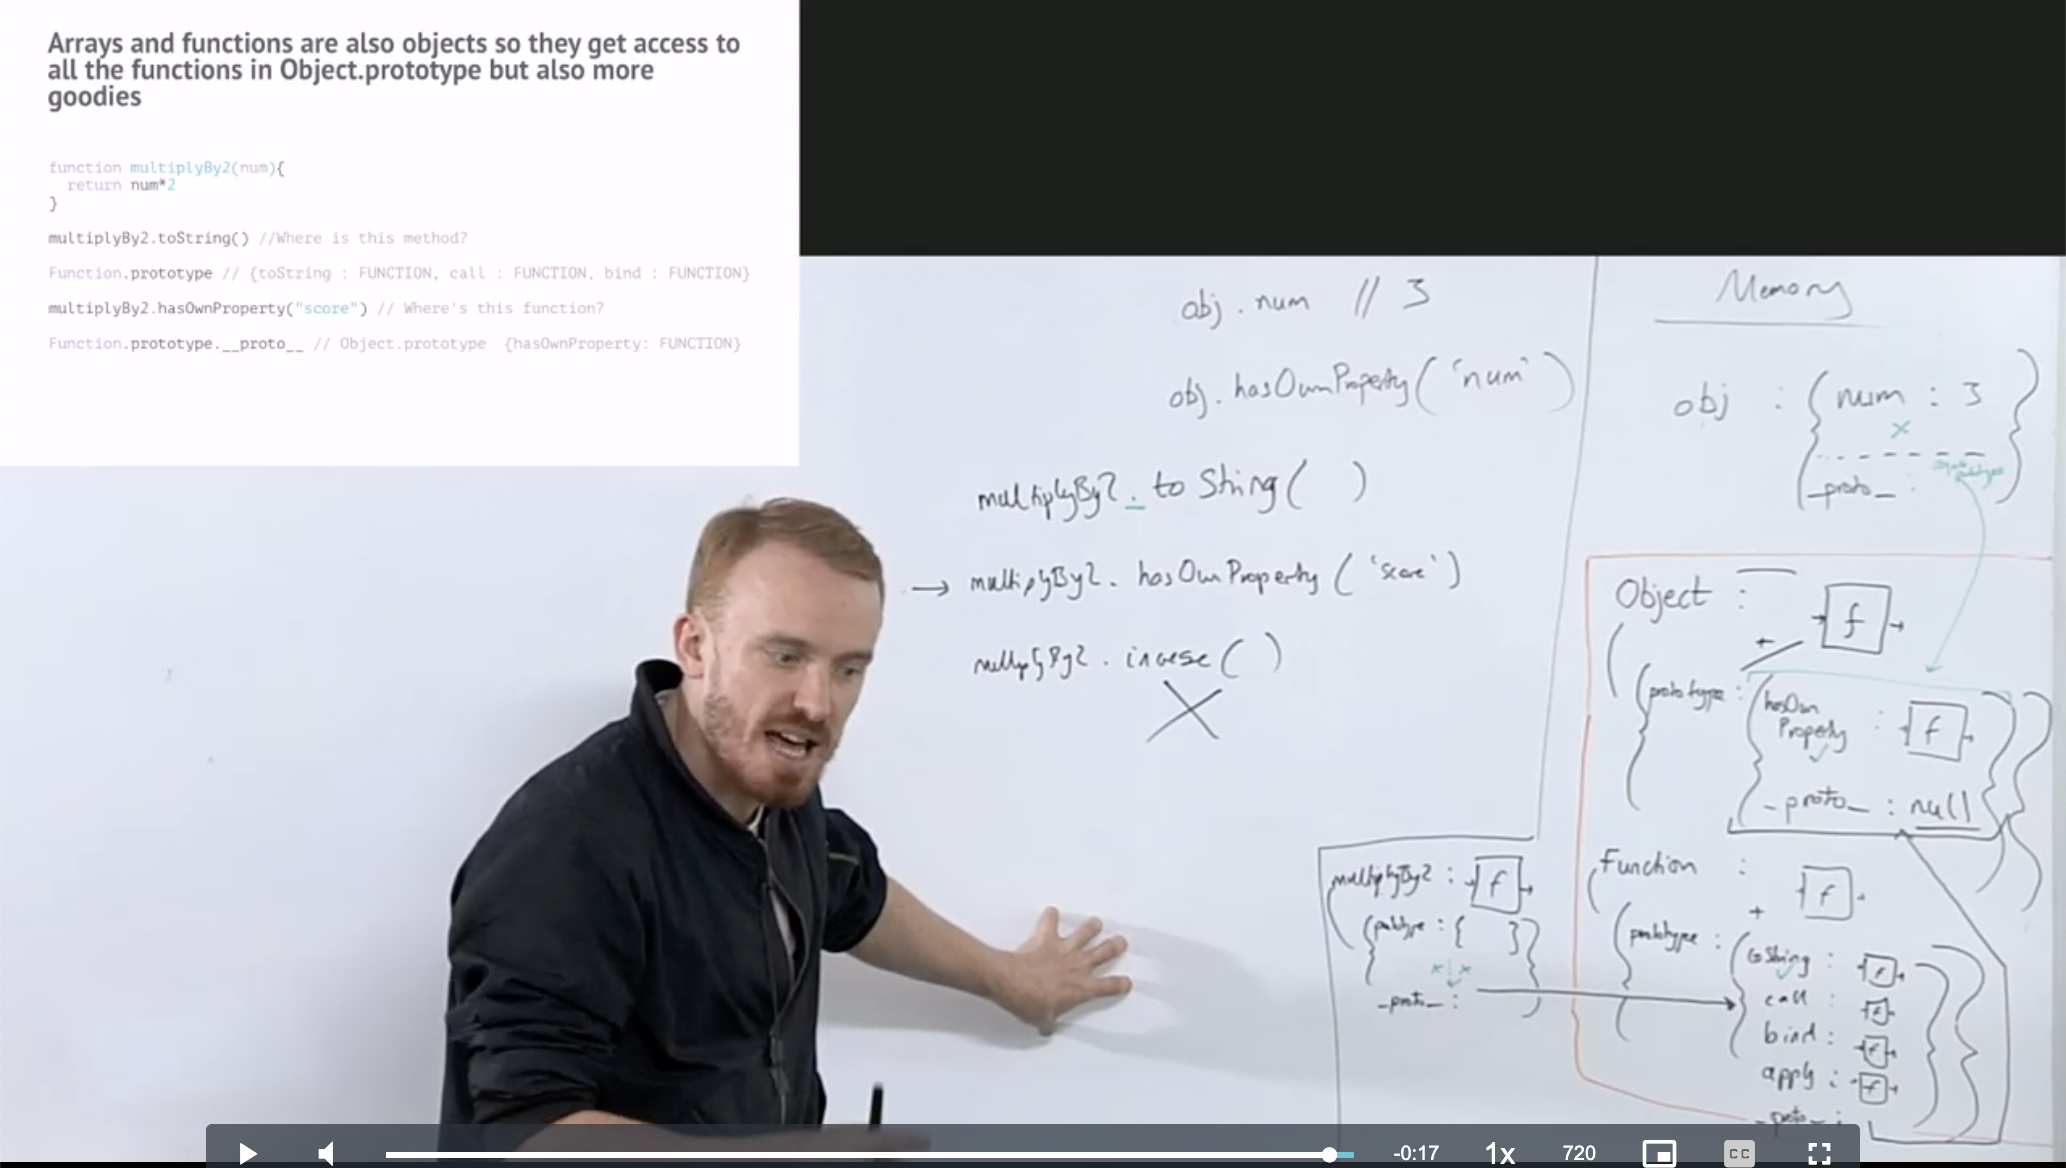 Arrays and functions are also objects so they get access to
all the functions in Object.prototype but also more
goodies
function multiplyBy2(num){
return num*2
}
multiplyBy2.toString() //Where is this method?
Function.prototype // {toString : FUNCTION, call : FUNCTION, bind : FUNCTION}
multiplyBy2.hasOwnProperty("score") // Where's this function?
Function.prototype.__proto__ // Object.prototype {hasOwnProperty: FUNCTION}
obj . num // 3
obj. hasOwnProperty( 'num' )
multiplyBy2. toString( )
→ multiplyBy2. hasOwnProperty ( 'score' )
multiplyBy2. ( )
Memory
obj : { num : 3 }
_proto_ :
Object : f
+
prototype : { hasOwn
Property : f
_proto_ : null
multiplyBy2 : f
prototype : { }
_proto_ :
Function : f
+
prototype : { toString : f
call : f
bind : f
apply : f
_proto_ :
-0:17 1x 720 CC